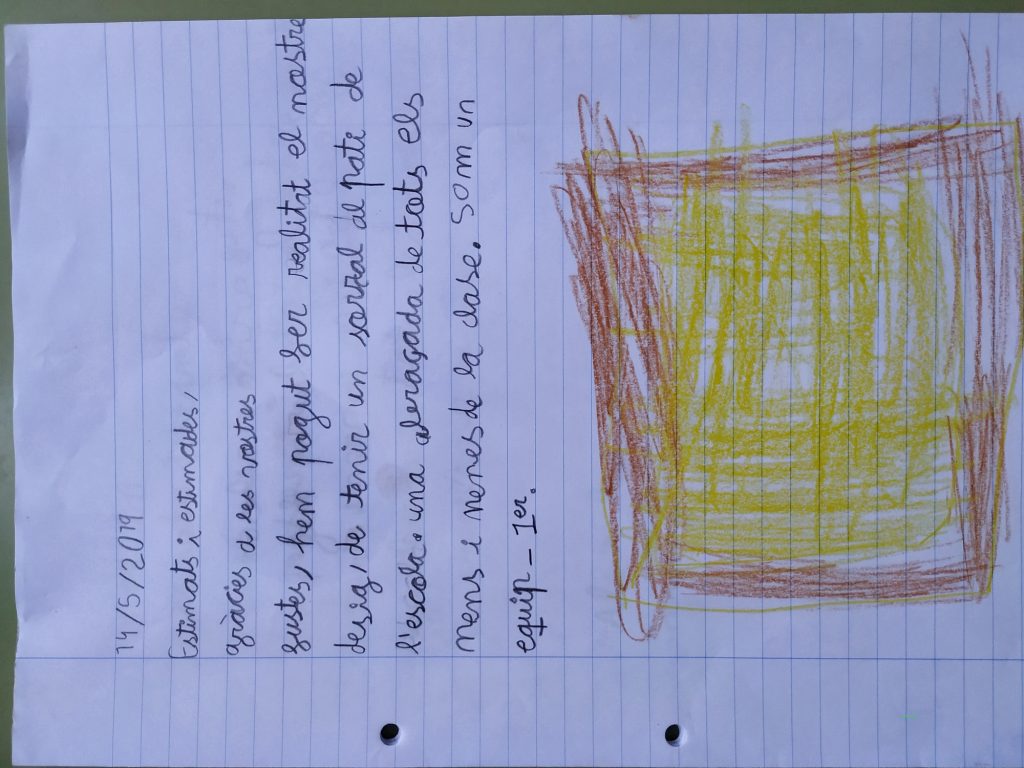 14/5/2019
Estimats i estimades,
gràcies a les vostres
fustes, hem pogut fer realitat el nostre
desig, de tenir un sorral al pati de
l'escola. una abraçada de tots els
nens i nenes de la clase. som un
equip - 1er.